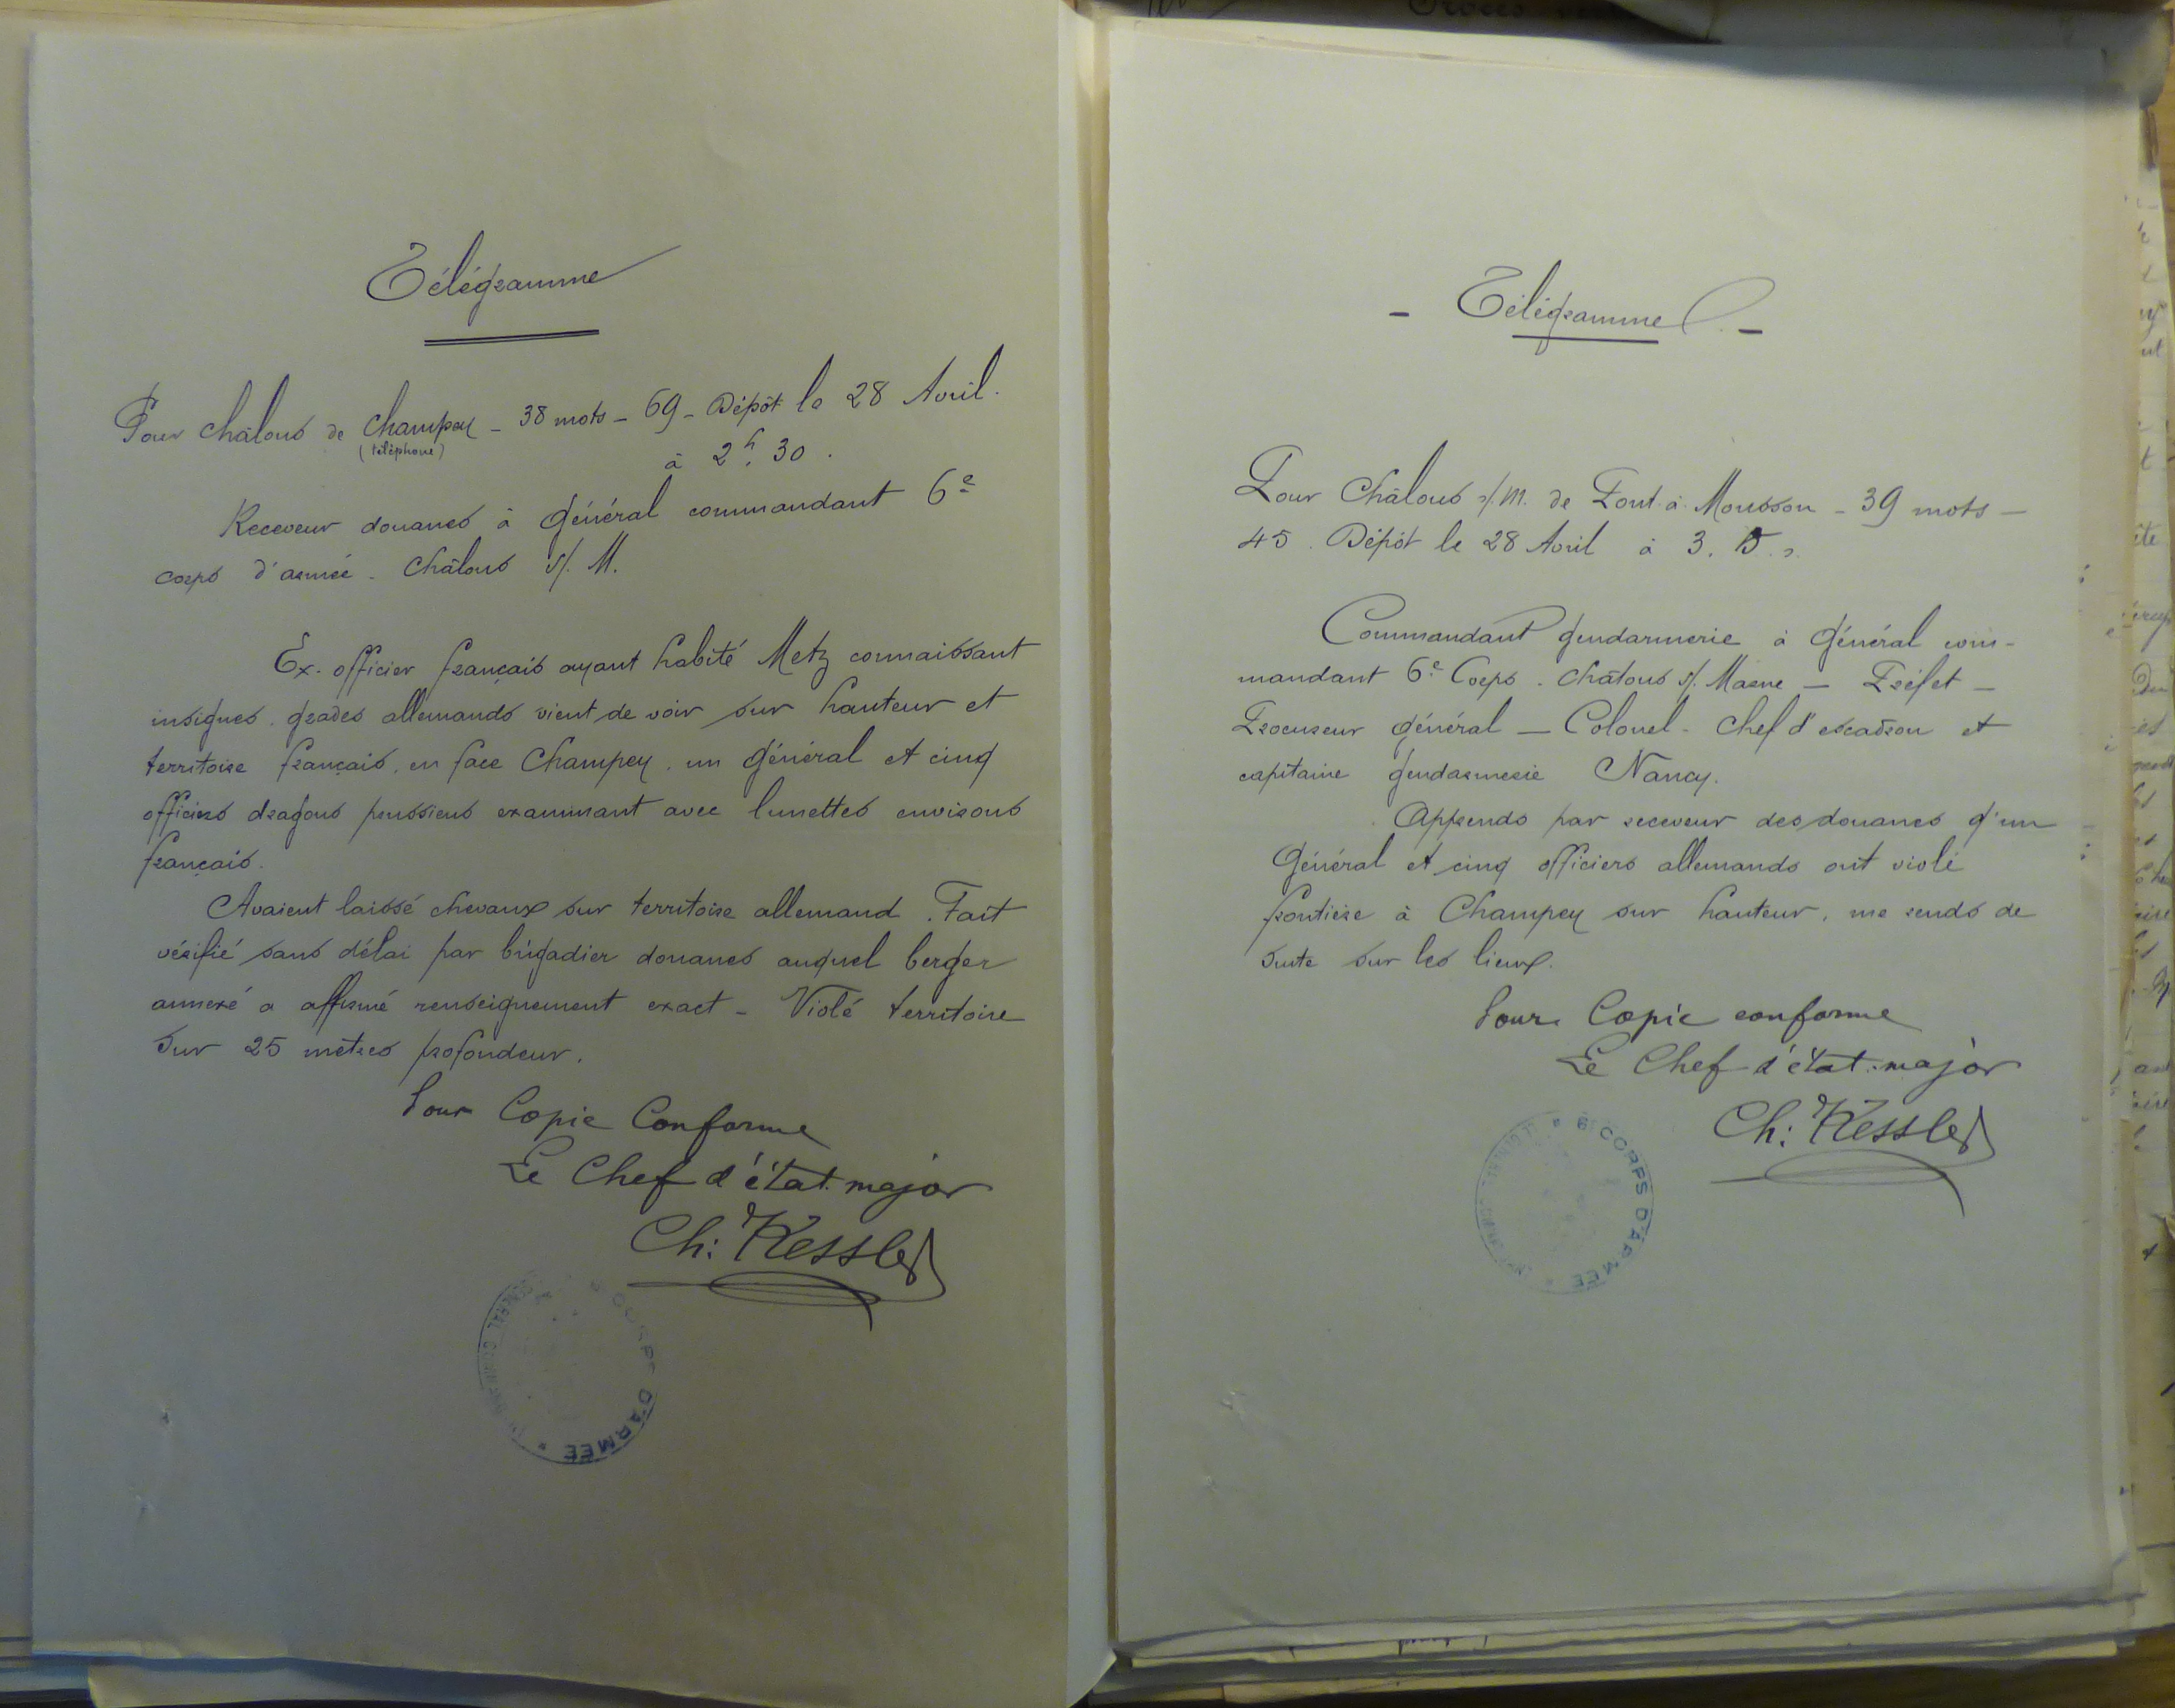 Télégramme
Pour Châlons de Champey - 38 mots - 69 - Dépôt le 28 Avril.
(téléphone)
à 2h. 30.
Receveur douanes à Général commandant 6e
corps d'armée. Châlons s/. M.
Ex-officier français ayant habité Metz connaissant
insignes. grades allemands vient de voir sur hauteur et
territoire français, en face Champey, un Général et cinq
officiers dragons prussiens examinant avec lunettes environs
français.
Avaient laissé chevaux sur territoire allemand. Fait
vérifié sans délai par brigadier douanes auquel berger
annexé a affirmé renseignement exact - Violé territoire
sur 25 mètres profondeur.
Pour Copie Conforme
Le Chef d'état-major
Ch: Kessler
6e CORPS D'ARMÉE
GENERAL COMMANDANT
- Télégramme -
Pour Châlons s/.M. de Pont-à-Mousson - 39 mots -
45. Dépôt le 28 Avril à 3. 15. s.
Commandant gendarmerie à Général com-
mandant 6e Corps. Châlons s/. Marne - Préfet -
Procureur général - Colonel - Chef d'escadron et
capitaine gendarmerie Nancy.
Apprends par receveur des douanes q'un
Général et cinq officiers allemands ont violé
frontière à Champey sur hauteur, me rends de
suite sur les lieux.
Pour Copie conforme
Le Chef d'état-major
Ch: Kessler
6e CORPS D'ARMÉE